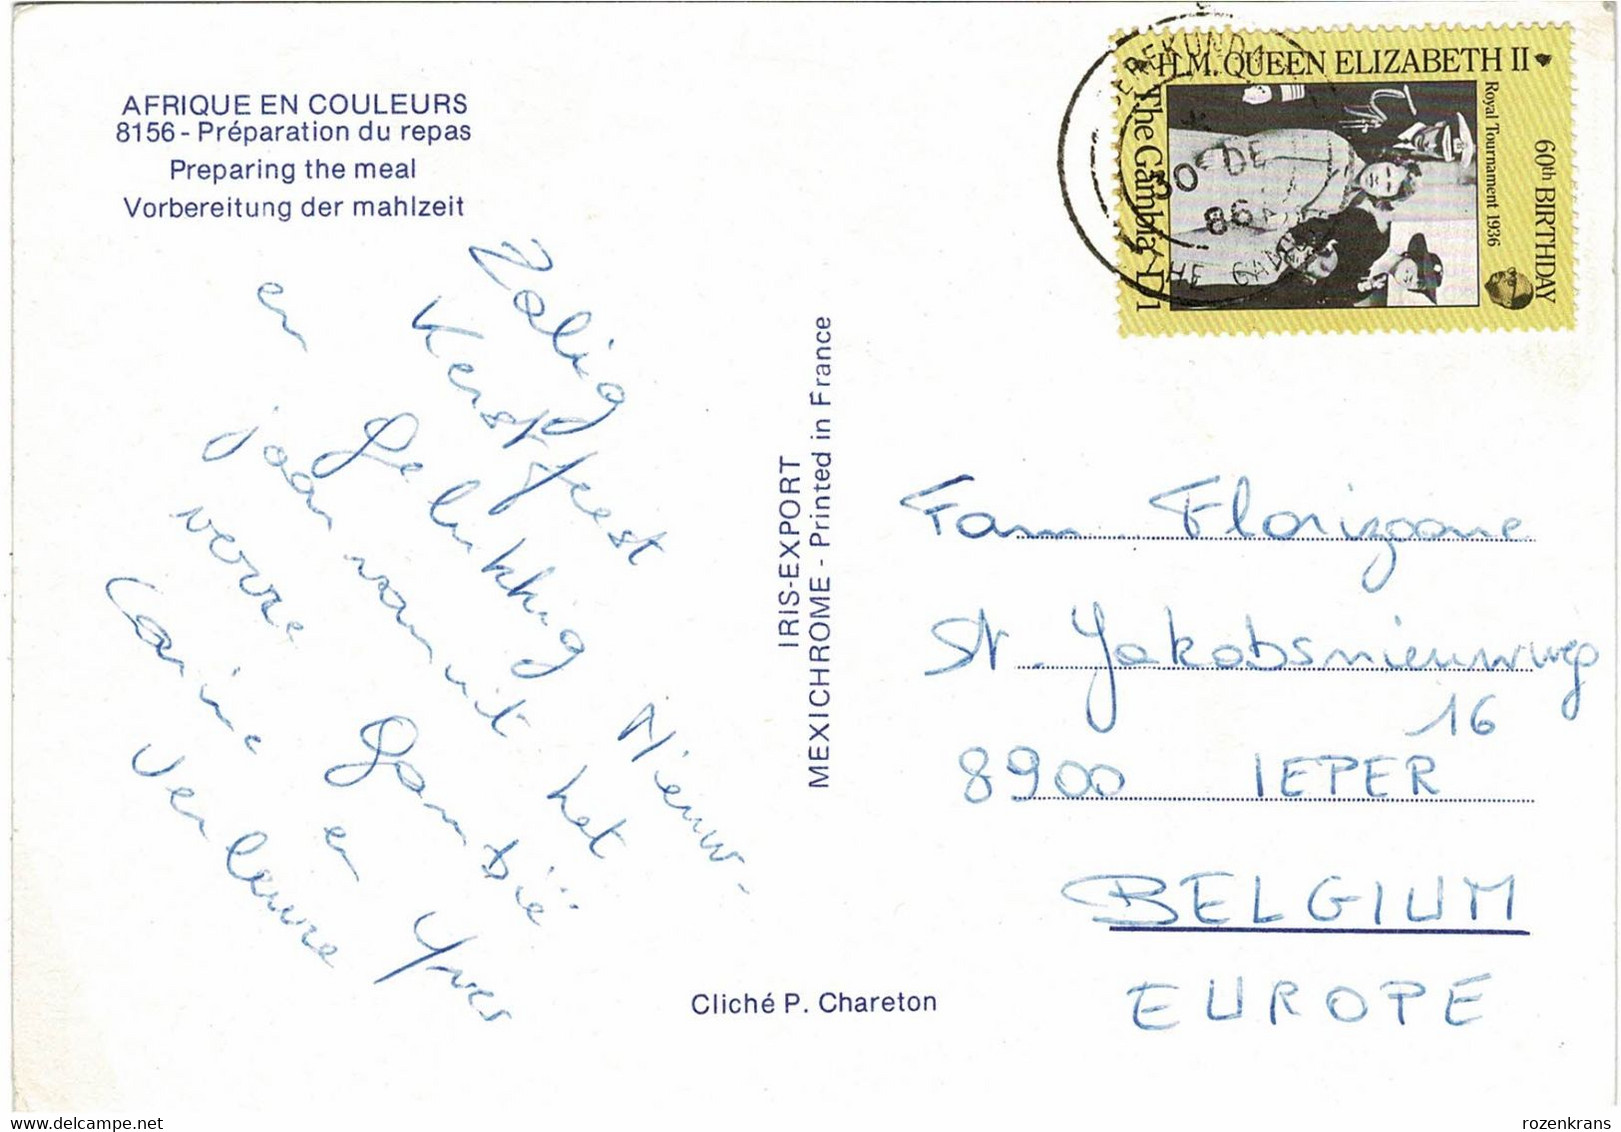 AFRIQUE EN COULEURS
8156 - Préparation du repas
Preparing the meal
Vorbereitung der mahlzeit
Zalig
Kerstfeest
en Gelukkig Nieuw-
jaar vanuit het
verre Gambië
Carine en Yves
Verleure
IRIS-EXPORT
MEXICHROME - Printed in France
Cliché P. Chareton
H.M. QUEEN ELIZABETH II
60th BIRTHDAY
Royal Tournament 1936
The Gambia D1
SEREKUNDA
30 DE
86
THE GAMBIA
Fam. Florizoone
St. Jakobsnieuwweg
16
8900 IEPER
BELGIUM
EUROPE
delcampe.net
rozenkrans